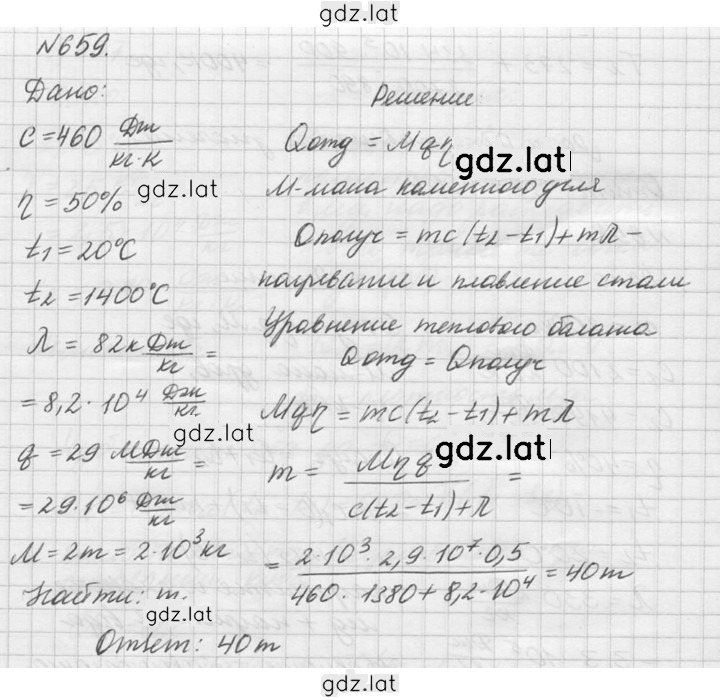 gdz.lat
№659.
Дано:
c = 460 Дж/кг·К
η = 50%
t₁ = 20°C
t₂ = 1400°C
λ = 82к Дж/кг =
= 8,2 · 10⁴ Дж/кг.
q = 29 МДж/кг =
= 29·10⁶ Дж/кг
М = 2т = 2·10³кг
Найти: m.
Решение
Qотд = Mqη
М-масса каменного угля
Qполуч = mc(t₂ - t₁) + mλ -
нагревание и плавление стали
Уравнение теплового баланса
Qотд = Qполуч
Mqη = mc(t₂ - t₁) + mλ
m = Mηq / c(t₂ - t₁) + λ =
= 2·10³·2,9·10⁷·0,5 / 460·1380 + 8,2·10⁴ = 40т
Ответ: 40т
gdz.lat
gdz.lat
gdz.lat
gdz.lat
gdz.lat
gdz.lat